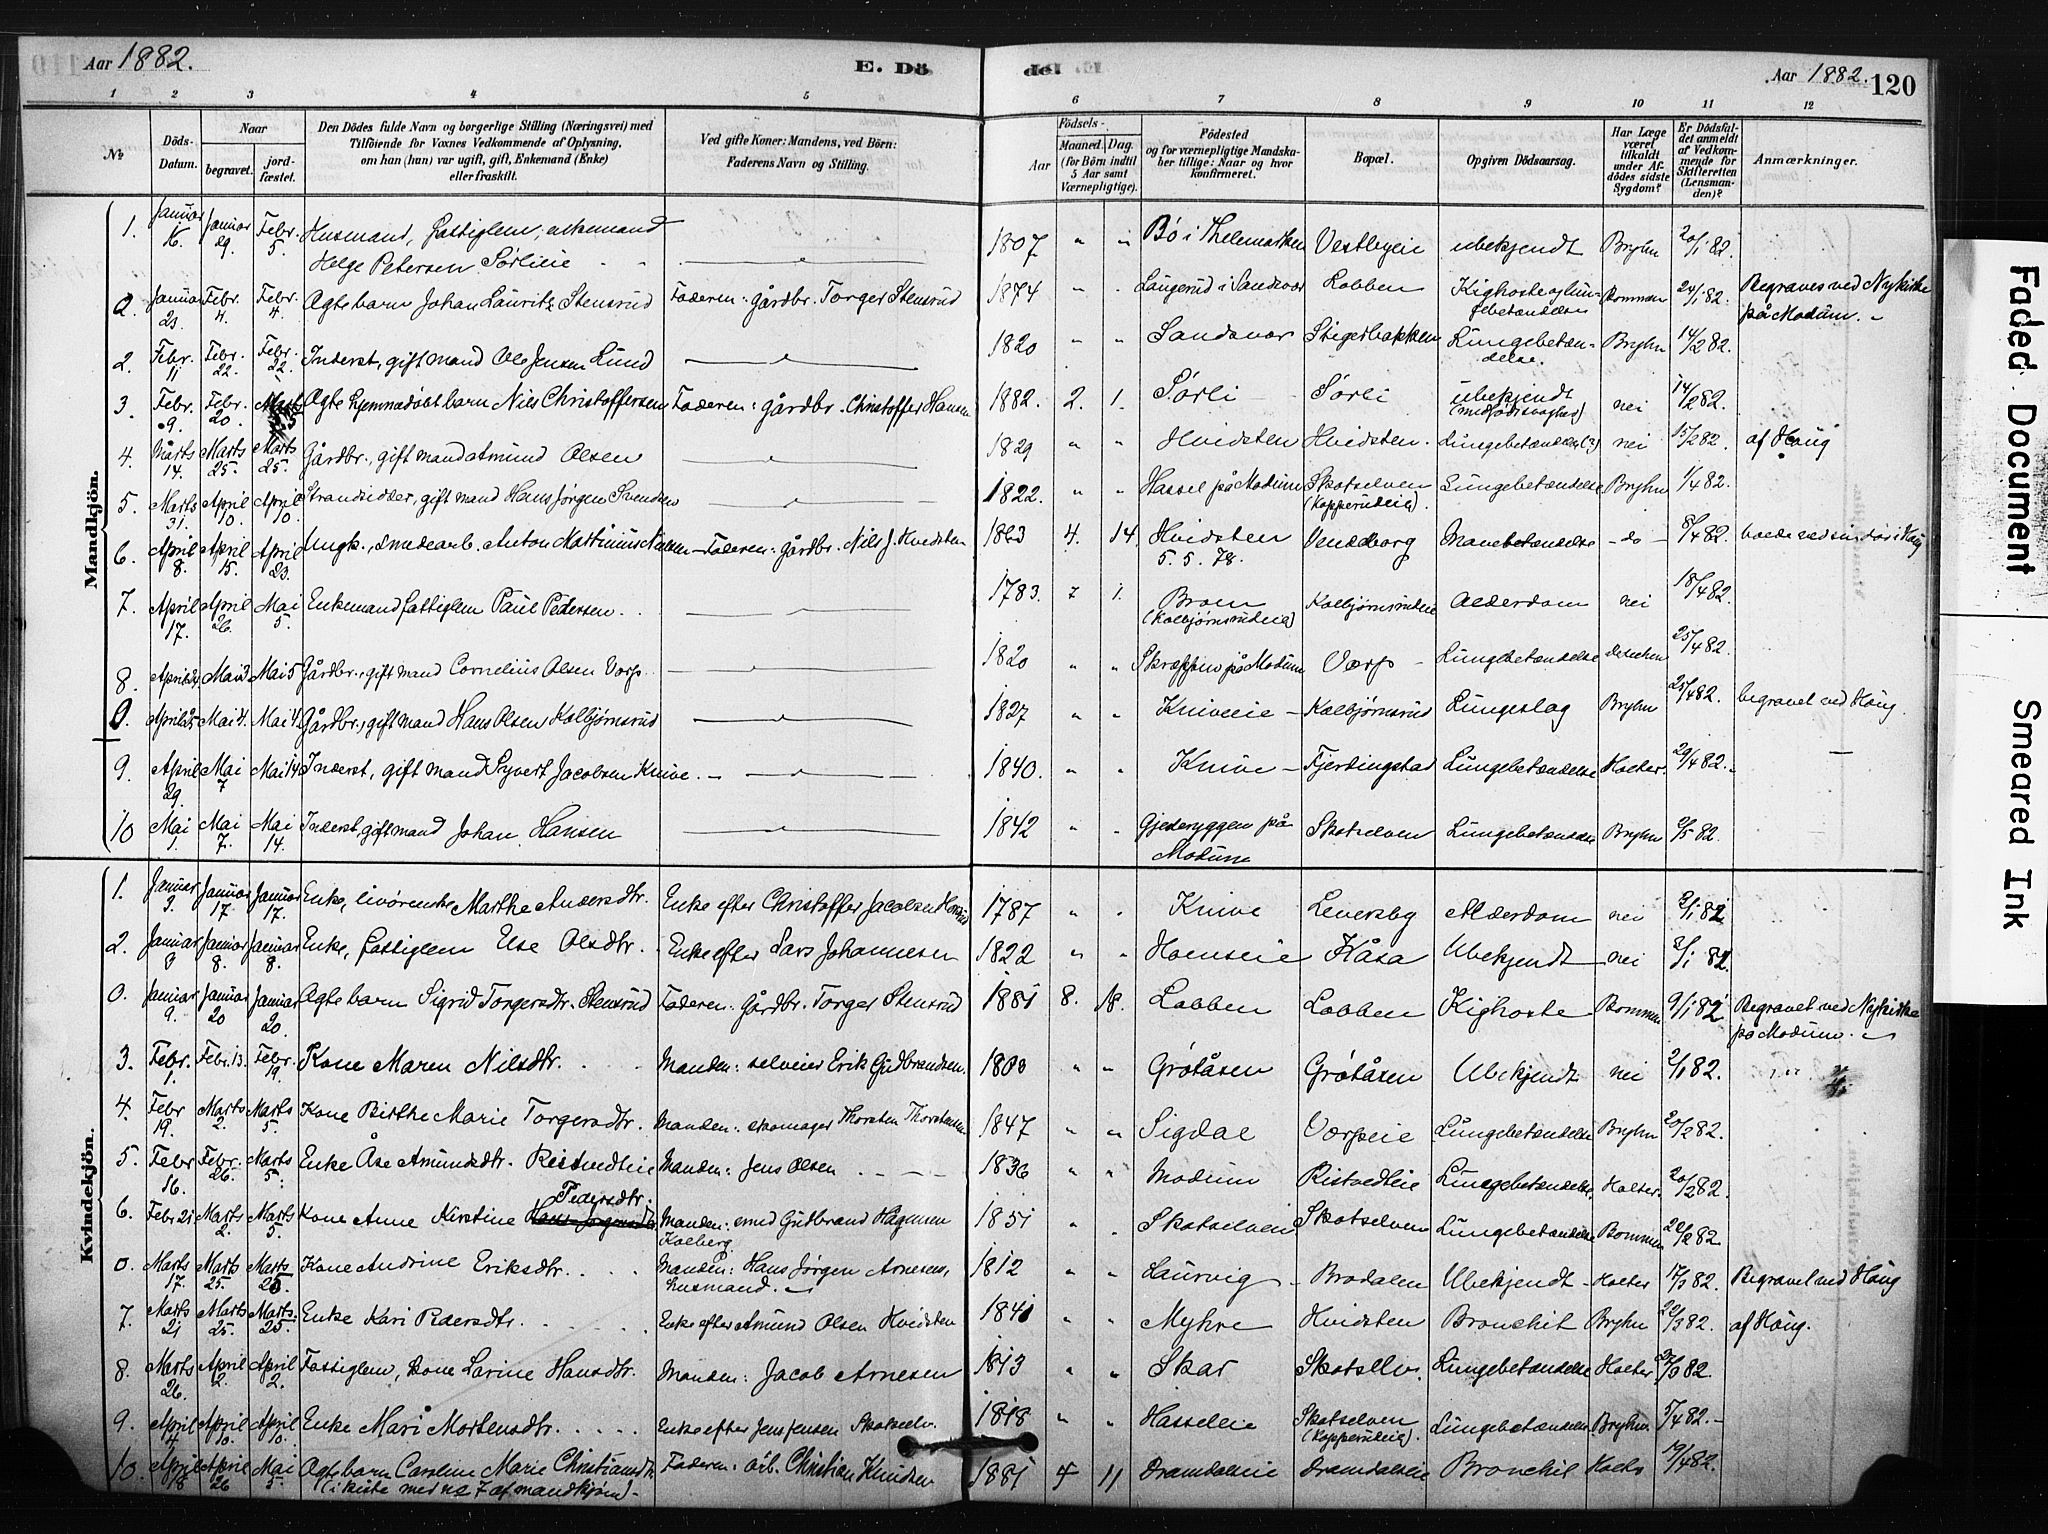 Aar 1882.
E. Dö
de.
Aar 1882.
120
1 2 3 4 5 6 7 8 9 10 11 12
No
Döds-Datum.
Naar
begravet.
jord-fæstet.
Den Dödes fulde Navn og borgerlige Stilling (Næringsvei) med
Tilföiende for Voxnes Vedkommende af Oplysning,
om han (hun) var ugift, gift, Enkemand (Enke)
eller fraskilt.
Ved gifte Koner: Mandens, ved Börn:
Faderens Navn og Stilling.
Födsels-
Aar
Maaned. Dag.
(for Börn indtil
5 Aar samt
Værnepligtige).
Födested
og for værnepligtige Mandska-
ber tillige: Naar og hvor
konfirmeret.
Bopæl.
Opgiven Dödsaarsag.
Har Læge
været
tilkaldt
under Af-
dödes sidste
Sygdom?
Er Dödsfal-
det anmeldt
af Vedkom-
mende for
Skifteretten
(Lensman-
den)?
Anmærkninger.
Mandkjön.
1. Januar 16. Januar 29. Febr. 5. Husmand, fattiglem, enkemand
Helge Petersen Sørlieie 1807 " " Bø i Thelemarken Vestbyeie ubekjendt Bryhn 20/1 82.
0. Januar 23. Febr. 4. Febr. 4. Ægte barn Johan Lauritz Stensrud Faderen: gårdbr. Torger Stensrud 1874 " " Langerud i Sandsvær Lobben Kighoste og lungebetændelse Bommen 24/1 82. Begraves ved Nykirke
på Modum.
2. Febr. 11 Febr. 22. Febr. 22. Inderst, gift mand Ole Jensen Lund 1820 " " Sandsvær Stigersbakken Lungebetændelse. Bryhn 14/2 82.
3. Febr. 9. Febr. 20. Marts Ægte hjemmedøbt barn Nils Christoffersen Faderen: gårdbr. Christoffer Hansen 1882. 2. 1. Sørli Sørli ubekjendt
(medfødt svaghed) nei 14/2 82.
4. Marts 14. Marts 25. Marts 25. Gårdbr., gift mand Amund Olsen 1829 " " Hvidsten Hvidsten. Lungebetændelse(?) nei 15/2 82. af Haug
5. Marts 31. April 10. April 10. Strandsidder, gift mand Hans Jørgen Svendsen 1822. " " Hassel på Modum Skotselven
(Kopperudeie). Lungebetændelse Bryhn 1/4 82.
6. April 8. April 15. April 23. Ungk., smedearb. Anton Martinius Nielsen Faderen: gårdbr. Nils J. Hvidsten 1863 4. 14. Hvidsten
5. 5. 78. Venseborg Mavebetændelse do 8/4 82.
7. April 17. April 26. Mai 5. Enkemand fattiglem Paul Pedersen 1783. 7 1. Broen
(Kolbjørnsrudeie) Kolbjørnsrudeie Alderdom nei 18/4 82.
8. April Mai 3 Mai 5 Gårdbr., gift mand Cornelius Olsen Vorp. 1820 " " Skreppen på Modum Værp Lungebetændelse 25/4 82.
0. April 25 Mai 4. Mai 4. Gårdbr., gift mand Hans Olsen Kolbjørnsrud 1827 " " Kniveeie Kolbjørnsrud Lungeslag Bryhn 25/4 82. begravet ved Haug.
9. April 29. Mai 7 Mai 14 Inderst, gift mand Syvert Jacobsen Knive. 1840. " " Knive Fjerdingstad Lungebetændelse Holter. 29/4 82.
10 Mai 1. Mai 7. Mai 14. Inderst, gift mand Johan Hansen 1842 " " Gjederyggen på
Modum Skotselven Lungebetændelse Bryhn 2/5 82.
Kvindekjön.
1. Januar 3. Januar 17. Januar 17. Enke, livørenske Marthe Andersdtr. Enke efter Christoffer Jacobsen 1787 " " Knive Leversby Alderdom nei 2/1 82
2. Januar 3 Januar 8. Januar 8. Enke, fattiglem Else Olsdtr. Enke efter Lars Johannesen 1822 " " Hoenseie Kåsa Ubekjendt nei 3/1 82.
0. Januar 9. Januar 20 Januar 20. Ægte barn Sigrid Torgersdtr. Stensrud Faderen: Gårdbr. Torger Stensrud 1881 8. 18. Lobben Lobben Kighoste Bommen 9/1 82 Begravet ved Nykirke
på Modum.
3. Febr. 1. Febr. 13. Febr. 19. Kone Maren Nilsdtr. Manden: selveier Erik Gudbrandsen. 1803 " " Grøtåsen Grøtåsen Ubekjendt nei 2/1 82.
4. Febr 19. Marts 2. Marts 5. Kone Birthe Marie Torgersdtr. Manden: skomager Thorsten Thorstensen 1847 " " Sigdal Værpeie Lungebetændelse Bryhn 20/2 82.
5. Febr 16. Febr. 26. Marts 5. Enke Åse Amundsdtr. Ristvedteie Manden: Jens Olsen 1836 " " Modum Ristvedteie Lungebetændelse Holter. 20/2 82.
6. Febr 21 Marts 2. Marts 5. Kone Anne Kirstine Pedersdtr. Manden: smed Gudbrand Hagensen
Kolberg. 1851 " " Skotselven Skotselven Lungebetændelse Bommen 22/2 82.
0. Marts 17. Marts 25. Marts 25 Kone Andrine Eriksdtr. Manden: Hans Jørgen Arnesens,
husmand. 1812 " " Laurvig Brodalen Ubekjendt Holter 17/3 82. Begravet ved Haug
7. Marts 21 Marts 25. Marts 25. Enke Kari Pedersdtr. Enke efter Amund Olsen Hvidsten 1841 " " Myhre Hvidsten Bronchit Bryhn 22/3 82. af Haug.
8. Marts 26. April 2. April 2. Fattiglem, kone Larine Hansdtr. Manden: Jacob Arnesen 1813 " " Skar Skotselv. Lungebetændelse Holter 27/3 82.
9. April 4 April 10. April 10. Enke Mari Mortensdtr. Enke efter Jens Jensen Skotselv. 1818 " " Hasseleie Skotselven
(Kopperudeie). Lungebetændelse Bryhn. 5/4 82.
10. April 18 April 26 Mai 5. Ægte barn Caroline Marie Christiansdtr. Faderen: arb. Christian Knudsen 1881 4 11 Dramdaleie Dramdaleie Bronchit Holter 19/4 82.
(i kiste med no 7 af mandkjøn)
Faded Document
Smeared Ink